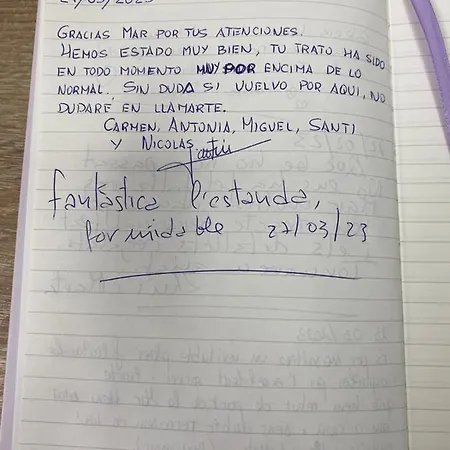 /03/2023
GRACIAS MAR POR TUS ATENCIONES.
HEMOS ESTADO MUY BIEN, TU TRATO HA SIDO
EN TODO MOMENTO MUY POR ENCIMA DE LO
NORMAL. SIN DUDA SI VUELVO POR AQUI, NO
DUDARÉ EN LLAMARTE.
CARMEN, ANTONIA, MIGUEL, SANTI
Y NICOLAS
fantàstica l'estanda,
formidable 27/03/23